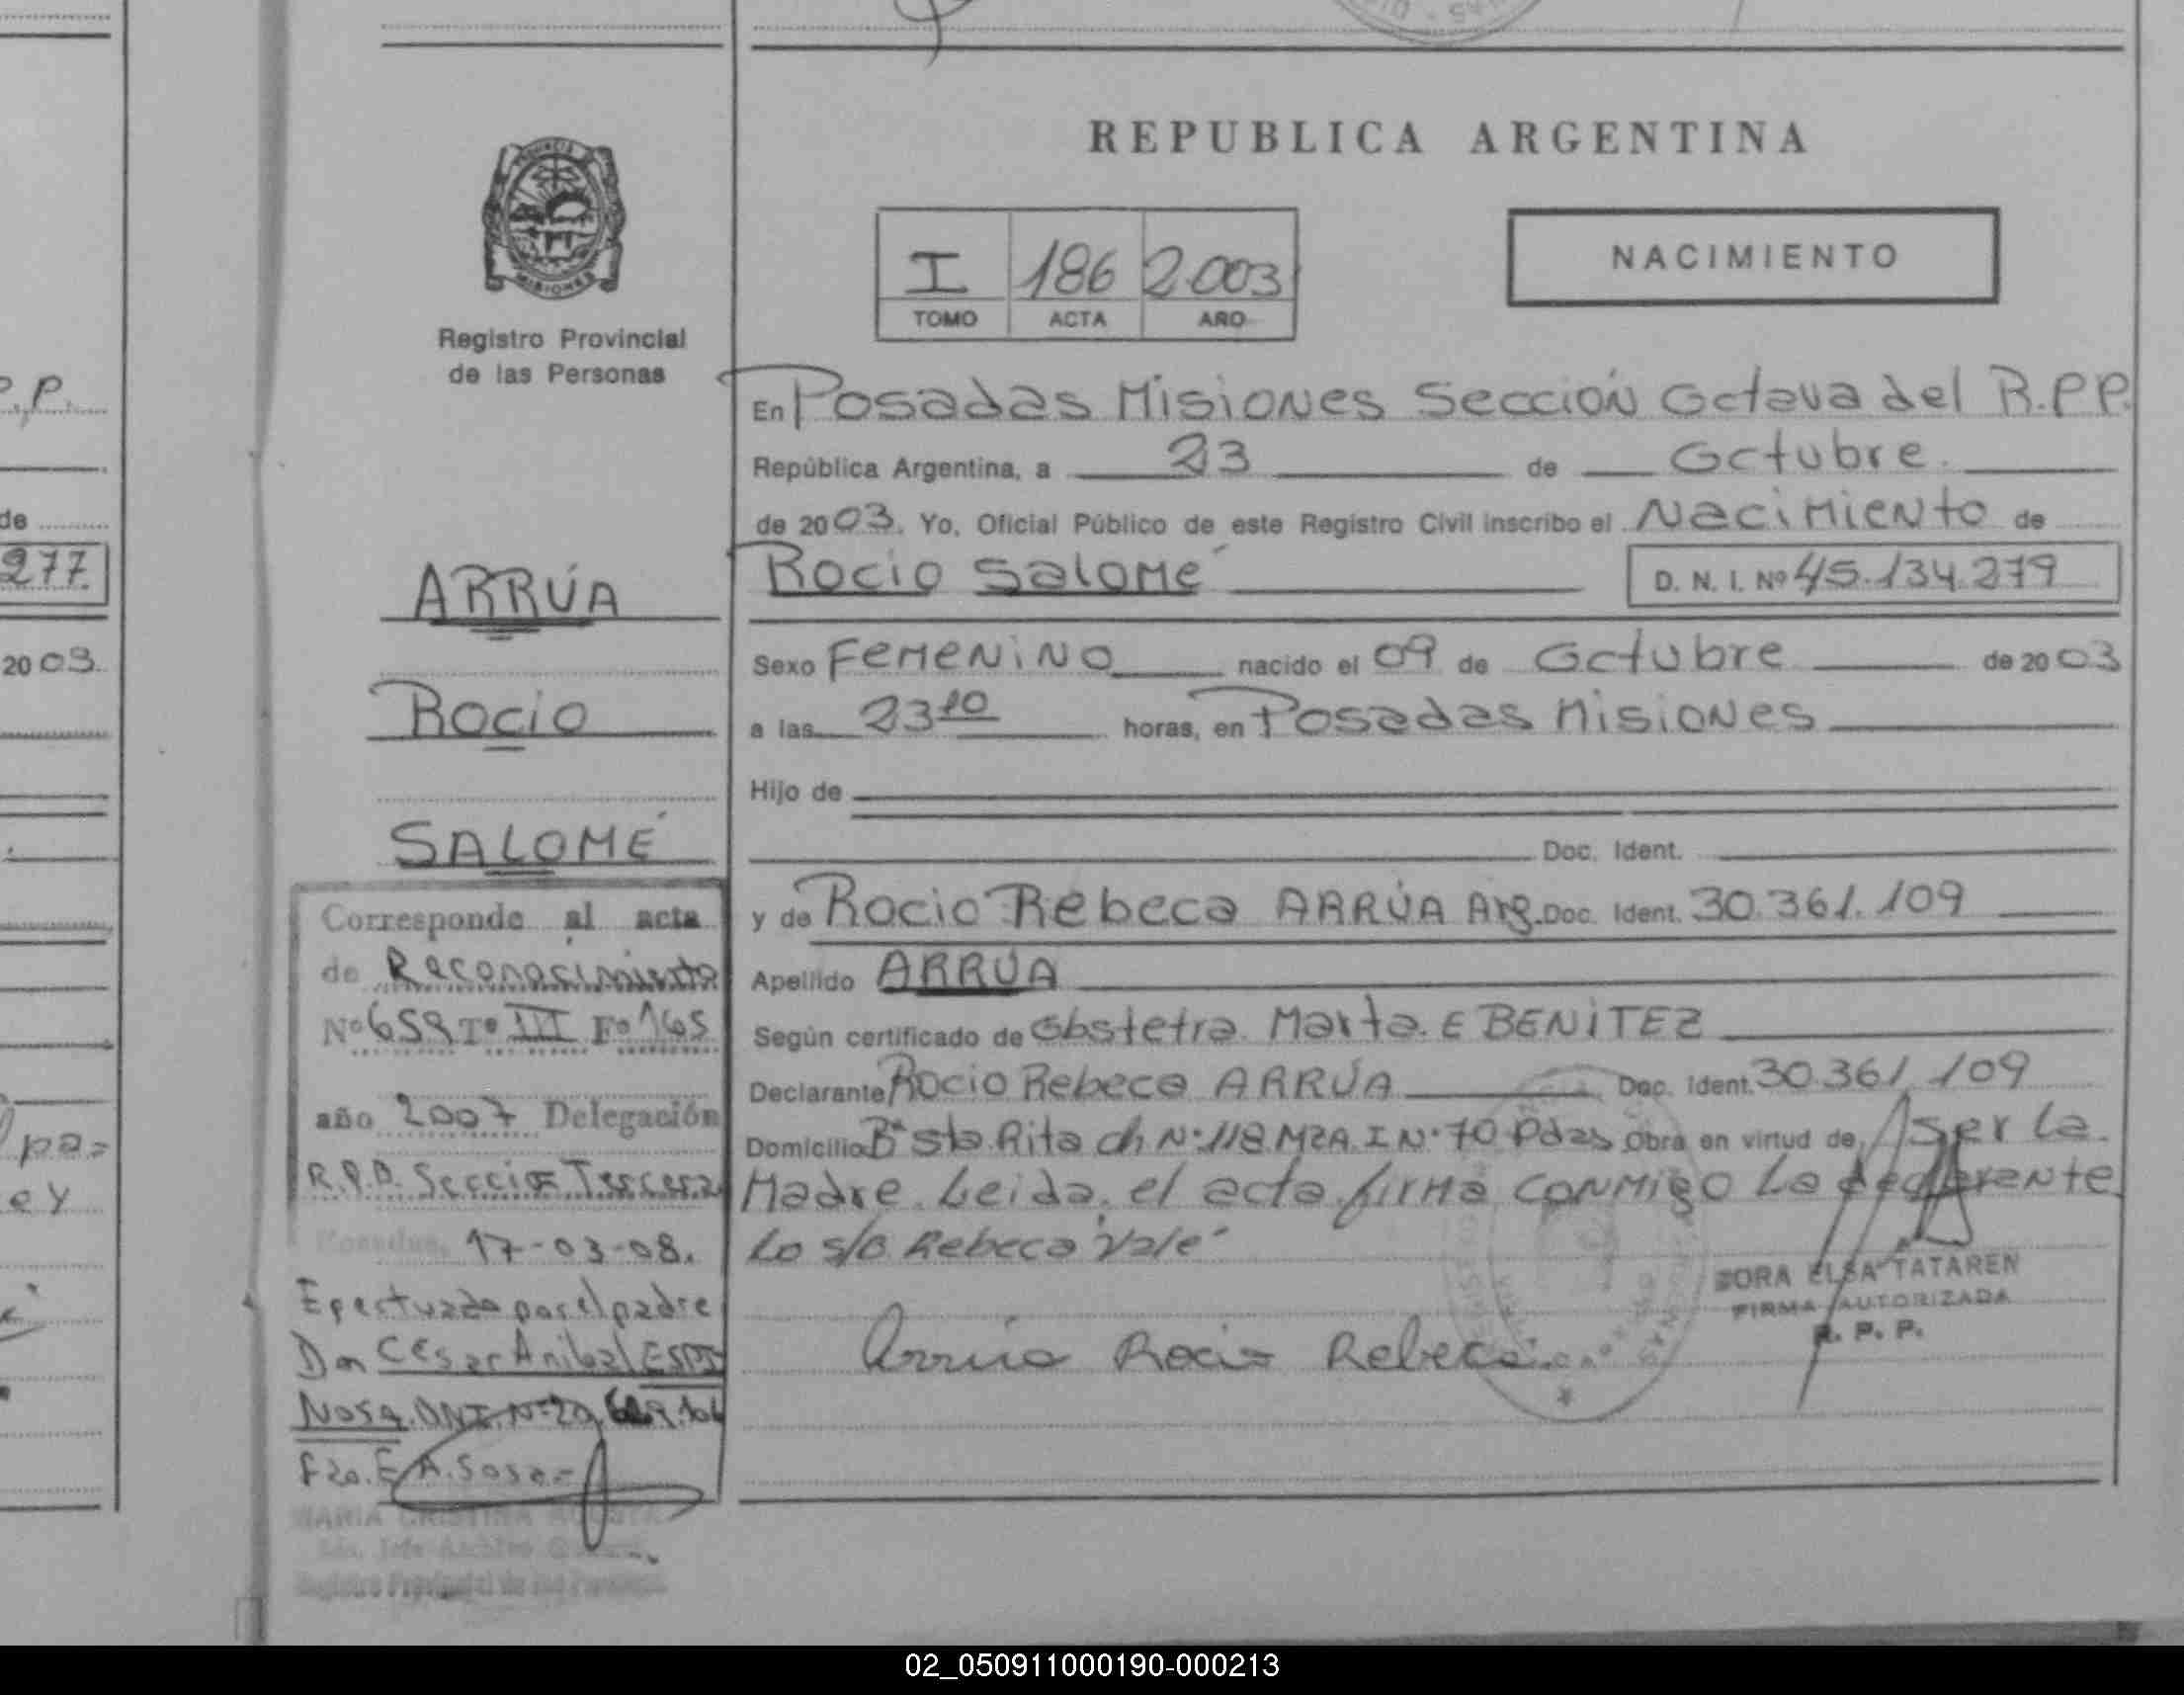 REPUBLICA ARGENTINA
PROVINCIA DE
MISIONES
Registro Provincial
de las Personas
I 186 2.003
TOMO ACTA AÑO
NACIMIENTO
En Posadas Misiones Sección Octava del R.P.P.
República Argentina, a 23 de Octubre.
de 2003. Yo, Oficial Público de este Registro Civil inscribo el Nacimiento de
Rocio Salomé D. N. I. Nº 45.134.279
Sexo Femenino nacido el 09 de Octubre de 2003
a las 23 10 horas, en Posadas Misiones
Hijo de
Doc. Ident.
y de Rocio Rebeca ARRÚA Arg. Doc. Ident. 30.361.109
Apellido ARRÚA
Según certificado de Obstetra. Marta. E BENITEZ
Declarante Rocio Rebeca ARRÚA Doc. Ident. 30.361.109
Domicilio Bº Sta. Rita ch Nº 118 MZA. I Nº 70 Pdas Obra en virtud de, A ser la
Madre. Leida, el acta firma conmigo la declarante
Lo s/b Rebeca Vale
Arrúa Rocio Rebeca
DORA ELSA TATAREN
FIRMA AUTORIZADA
R. P. P.
ARRÚA
Rocio
SALOMÉ
Corresponde al acta
de Reconocimiento
Nº 659 Tº III Fº 165
año 2007 Delegación
R.P.P. Sección Tercera
Posadas, 17-03-08.
Efectuado por el padre
Don César Anibal
DNI. Nº
Fdo. A. Sosa=
MARIA CRISTINA ACOSTA
Registro Provincial de las Personas
P.P.
de
277
2003.
pa=
ey
02_050911000190-000213